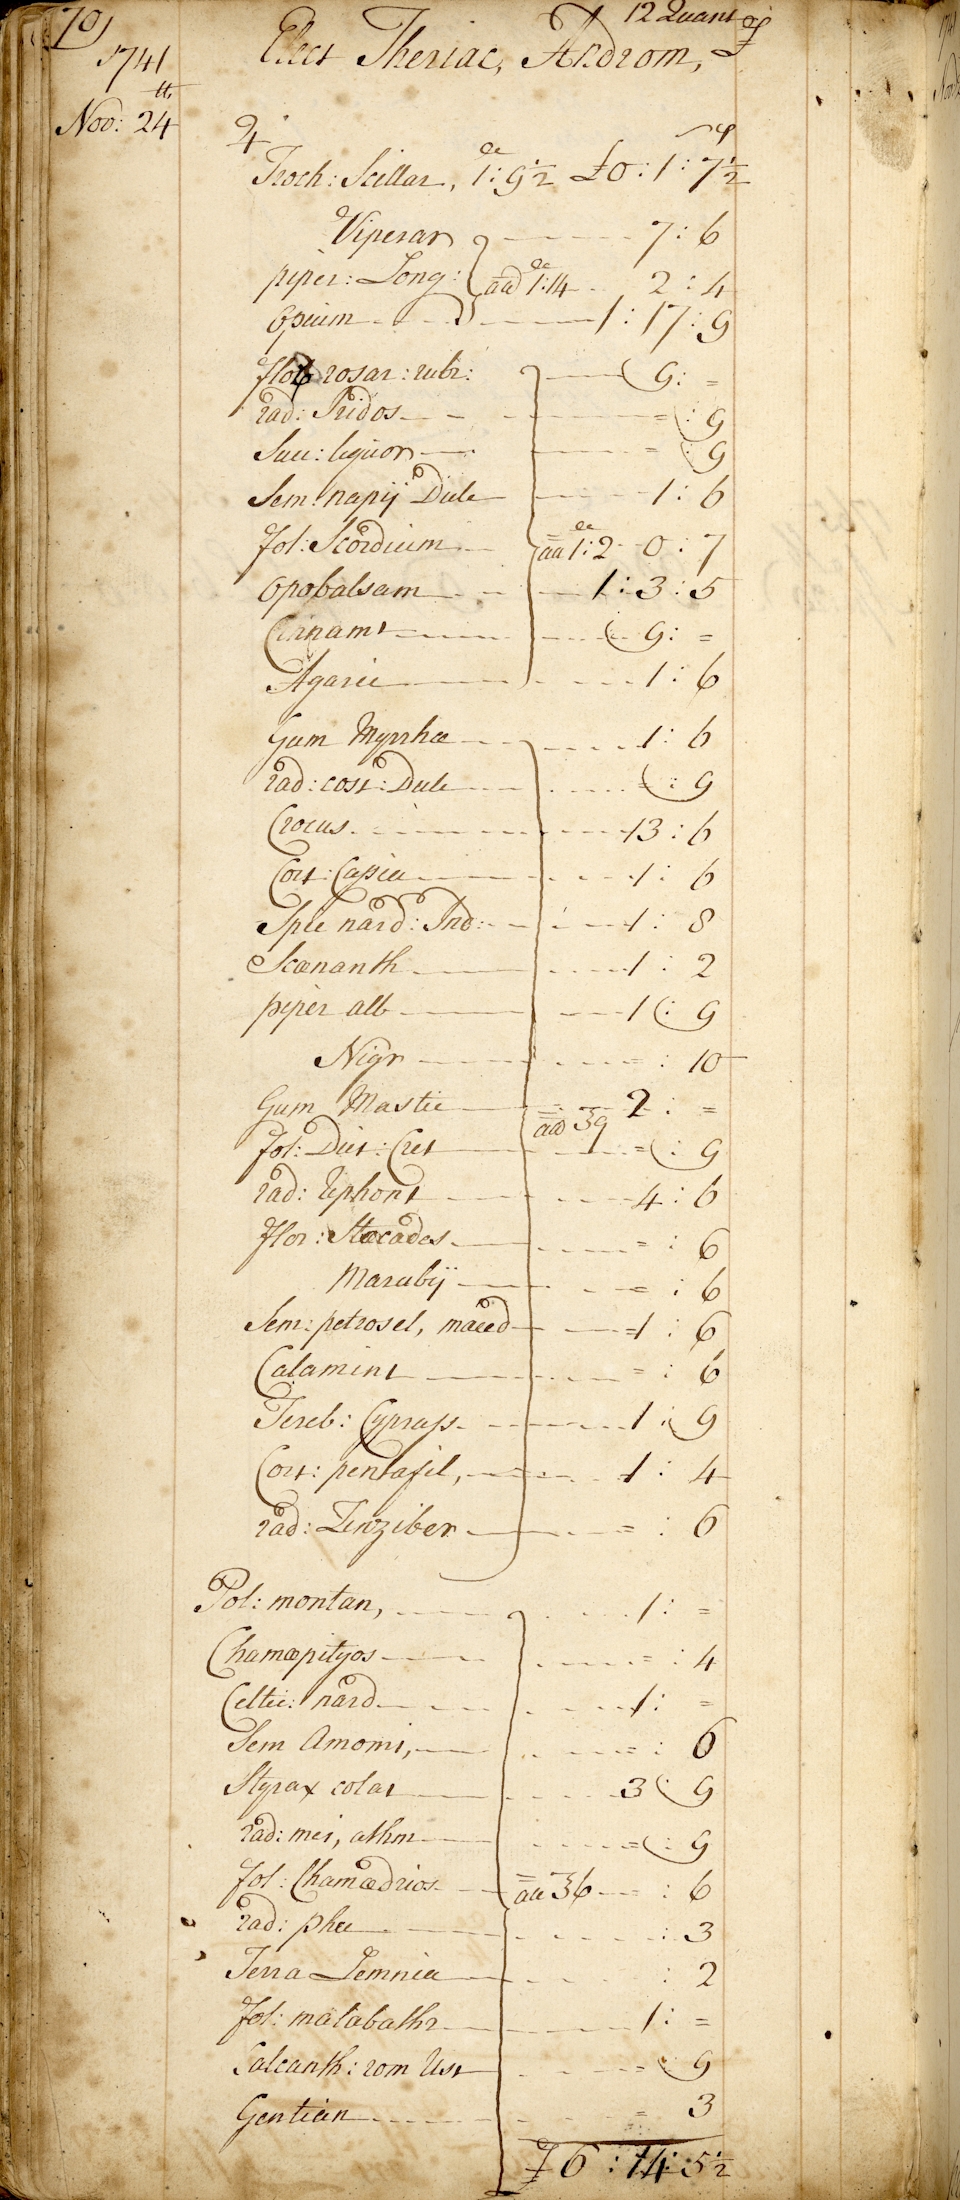 70
12 Quant of
1741 Elect Theriac, Androm,
Nov: 24th
♃
Troch: Scillar, 1:9½ £0:1:7½
Viperar 7:6
piper: Long: aa 1:14 2:4
Opium 1:17:9
flor rosar: rubr: 9: =
rad: Iridos = :9
Succ: liquor = :9
Sem: napij Dulc 1:6
fol: Scordium aa 1:2 0:7
Opobalsam 1:3:5
Cinnam 9: =
Agaric 1:6
Gum Myrrhæ 1:6
rad: cost: Dulc = :9
Crocus 13:6
Cort: Cassia 1:6
Spic nard: Ind: 1:8
Scœnanth 1:2
piper alb 1:9
Nigr = :10
Gum Mastic aa ʒ9 2: =
fol: Dict: Cret = :9
rad: Rhpont 4:6
flor: Stæcados = :6
Marubij = :6
Sem: petrosel, maced 1:6
Calamint = :6
Tereb: Cyprass 1:9
Cort: pentafil, 1:4
rad: Zinziber = :6
Pol: montan, 1: =
Chamæpityos = :4
Celtic: nard 1: =
Sem Amomi, = :6
Styrax colat 3:9
rad: mei, athm = :9
fol: Chamædrios aa ʒ6 :6
rad: phu :3
Terra Lemnia :2
fol: malabathr 1: =
Calcanth: rom Ust = :9
Gentian = 3
£6:14:5½